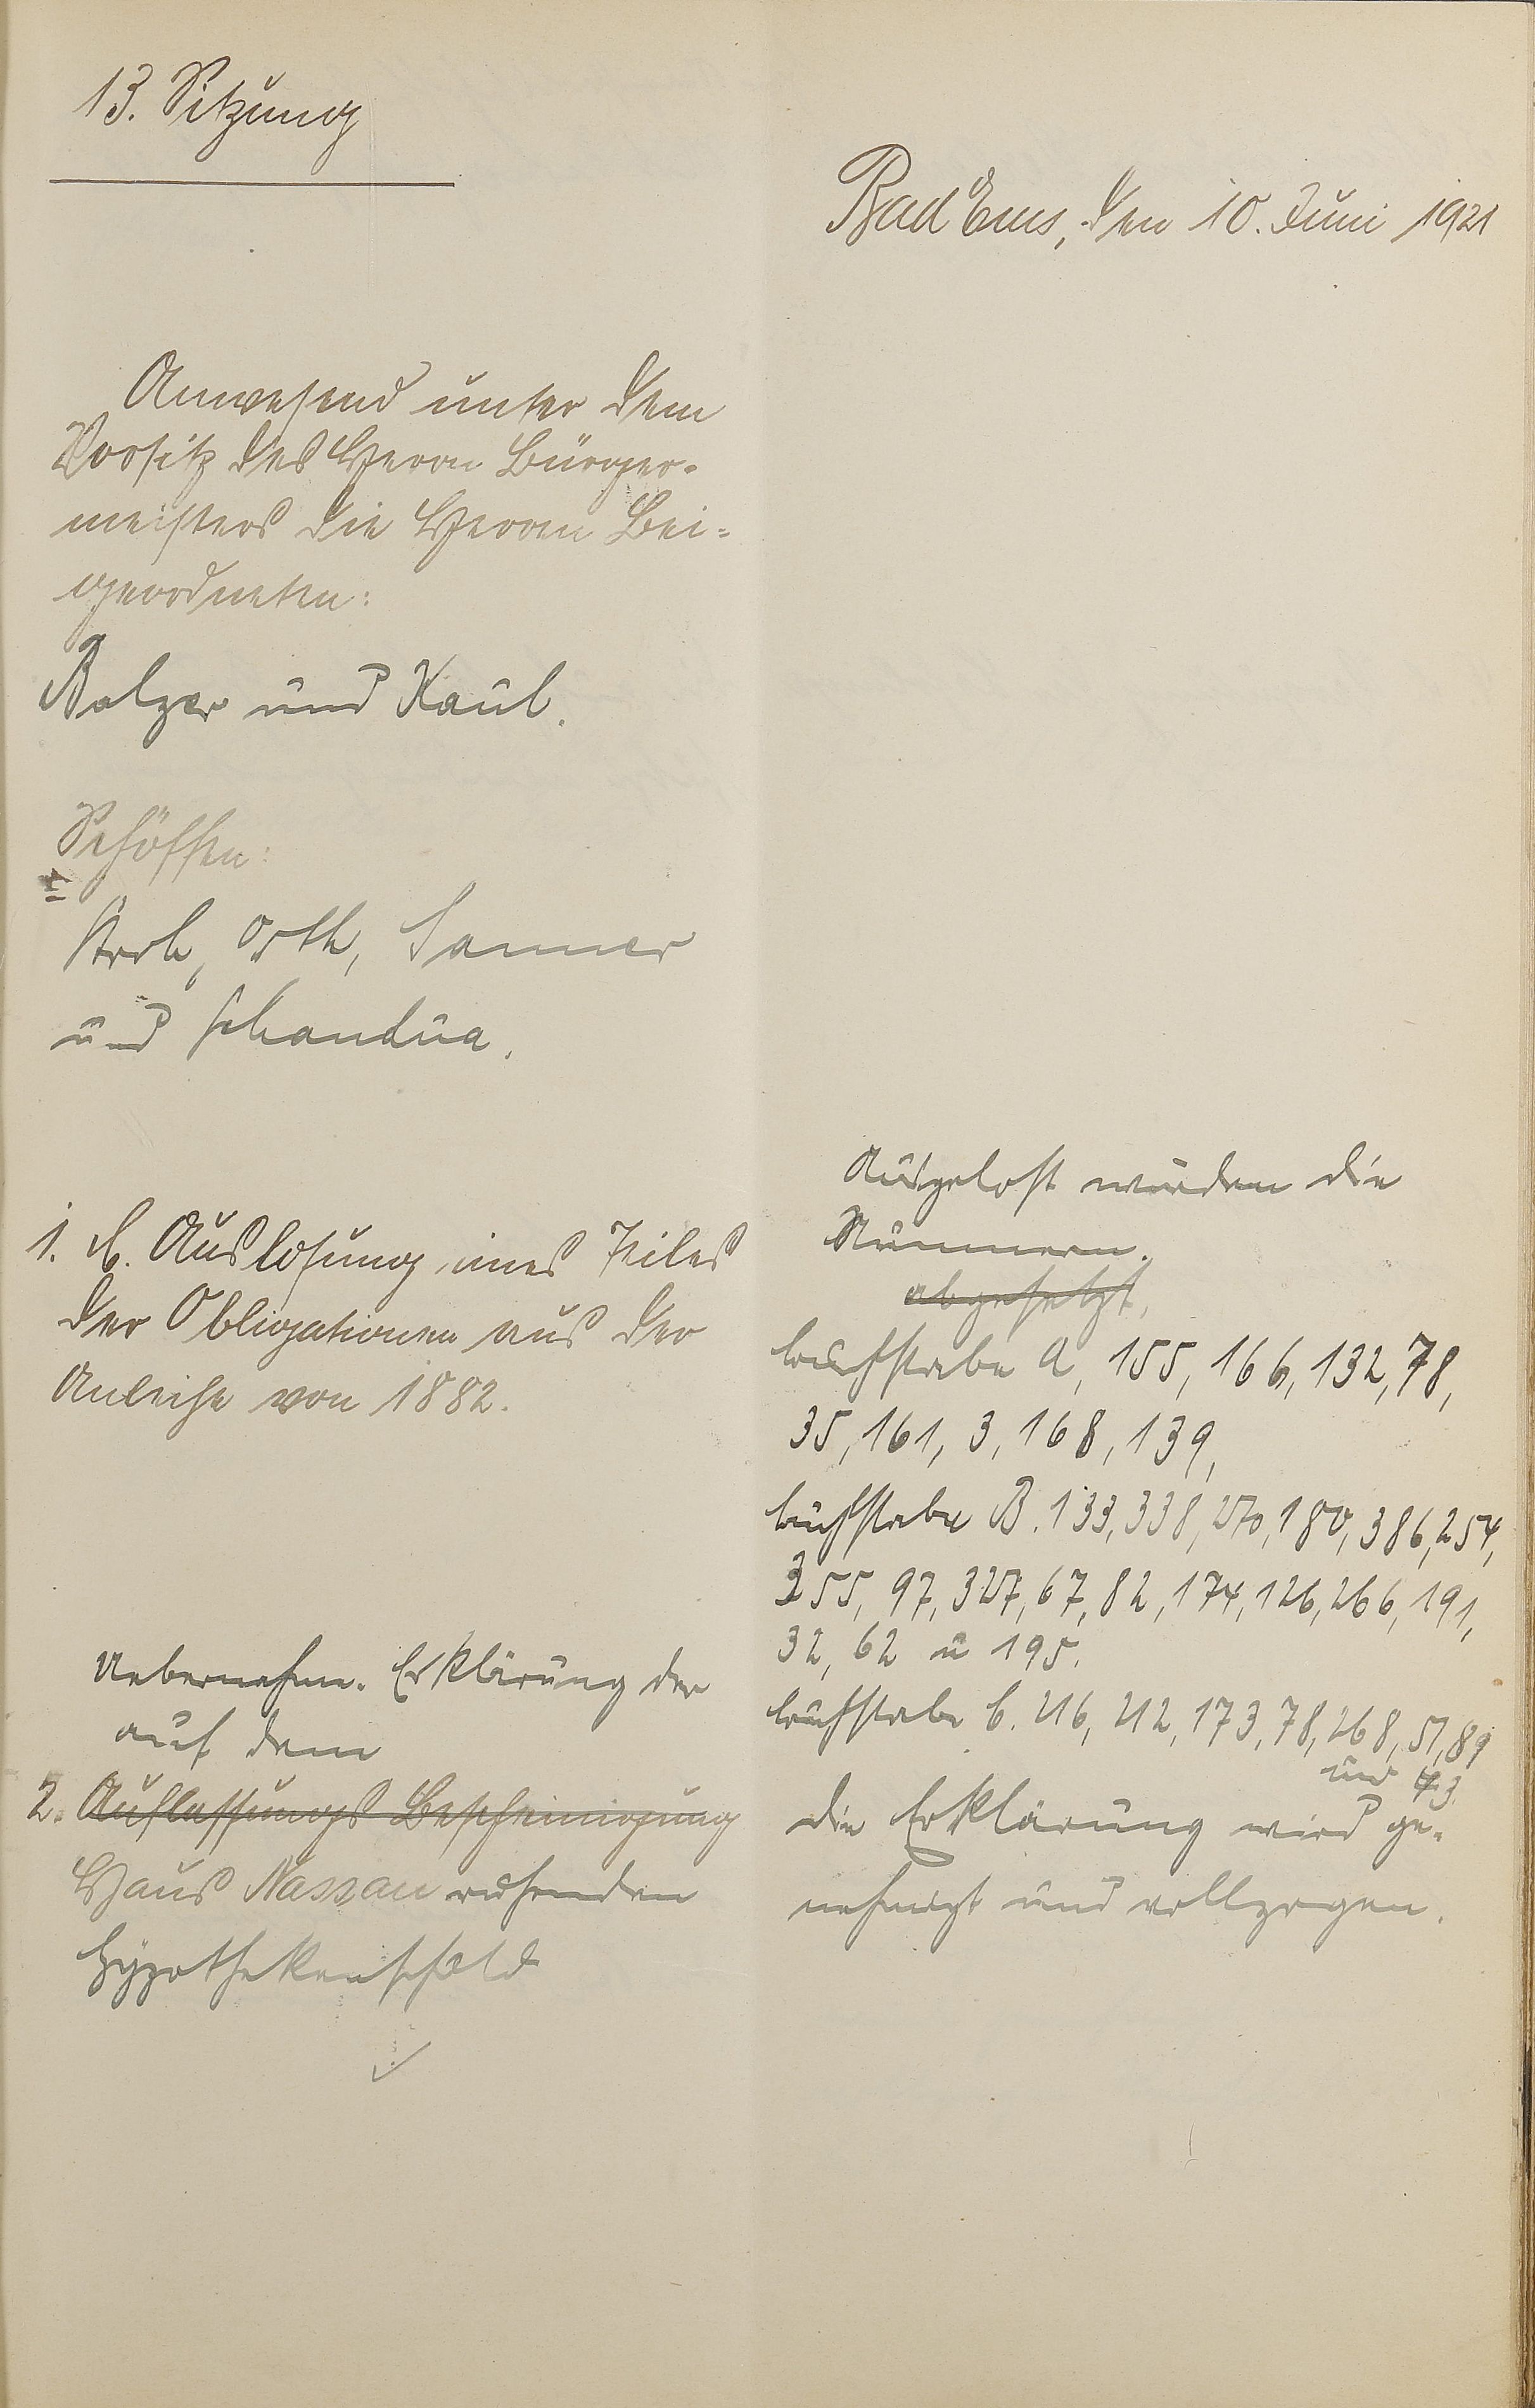 13. Sitzung
Bad Ems, den 10. Juni 1921
Anwesend unter dem
Vorsitz des Herrn Bürger-
meisters die Herren Bei-
geordneten:
Balzer und Kaul.
Schöffen:
Orth, Sanner
und Schandua.
1. b. Auslosung eines Teiles
der Obligationen aus der
Anleihe von 1882.
Ausgelost wurden die
Nummern.
abgesetzt.
buchstabe A, 155, 166, 132, 78,
35, 161, 3, 168, 139,
buchstabe B. 133, 338, 270, 180, 386, 254,
355, 97, 327, 67, 82, 174, 126, 266, 191,
32, 62 u 195.
buchstabe C. 216, 212, 173, 78, 268, 51, 89
und 43.
Uebernahme. Erklärung der
auf dem
2. Auflassungs Bescheinigung
Haus Nassau ruhenden
Hypothekenschuld
die Erklärung wird ge-
nehmigt und vollzogen.